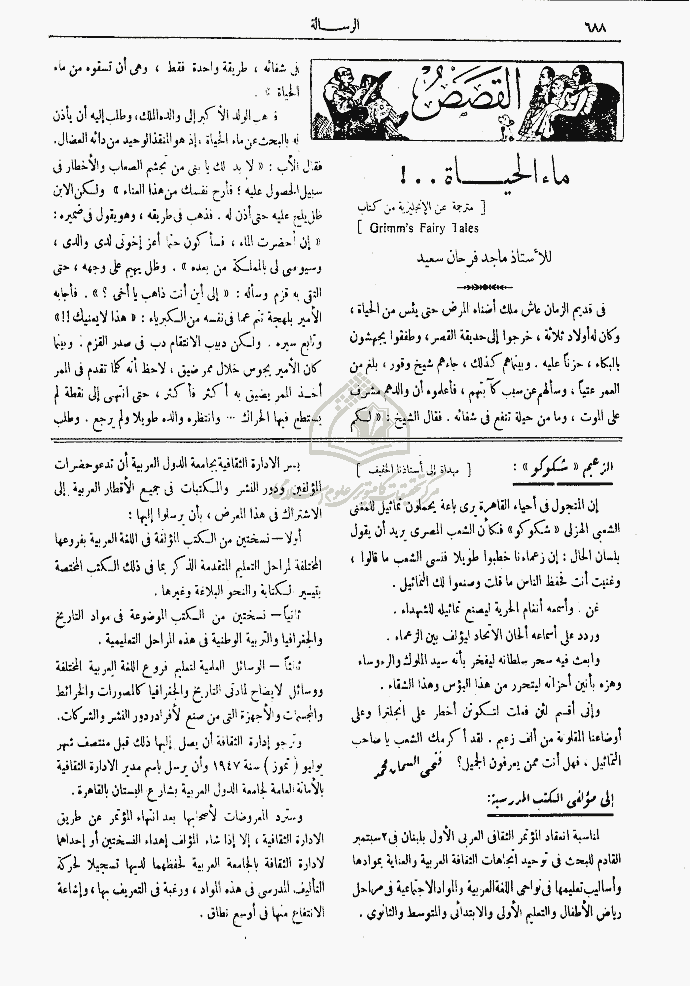 ٦٨٨
الرسالة
القصص
ماء الحياة . . !
[ مترجمة عن الإنجليزية من كتاب
[ Grimm's Fairy Tales
للأستاذ ماجد فرحان سعيد
فى قديم الزمان عاش ملك أضناه المرض حتى يئس من الحياة ،
وكان له أولاد ثلاثة ، خرجوا إلى حديقة القصر ، وطفقوا يجهشون
بالبكاء ، حزناً عليه . وبينما هم كذلك ، جاءهم شيخ وقور ، بلغ من
العمر عتياً ، وسألهم عن سبب كآبتهم ، فأعلموه أن والدهم مشرف
على الموت ، وما من حيلة تنفع فى شفائه . فقال الشيخ : « لكم
فى شفائه ، طريقة واحدة فقط ، وهى أن تسقوه من ماء
الحياة » .
ذهب الولد الأكبر إلى والده الملك ، وطلب إليه أن يأذن
له بالبحث عن ماء الحياة ، إذ هو المنقذ الوحيد من دائه العضال .
فقال الأب : « لا بد لك يا بنى من تجشم الصعاب والأخطار فى
سبيل الحصول عليه ؛ فأرح نفسك من هذا العناء » ولكن الابن
ظل يلح عليه حتى أذن له . فذهب فى طريقه ، وهو يقول فى ضميره :
« إن أحضرت الماء ، فسأكون حتماً أعز إخوتى لدى والدى ،
وسيوصى لى بالمملكة من بعده » . وظل يهيم على وجهه ، حتى
التقى به قزم وسأله : « إلى أين أنت ذاهب يا أخى ؟ » . فأجابه
الأمير بلهجة تنم عما فى نفسه من الكبرياء : « هذا لا يعنيك !! »
وتابع سيره . ولكن دبيب الانتقام دب فى صدر القزم : وبينما
كان الأمير يجوس خلال ممر ضيق ، لاحظ أنه كلما تقدم فى الممر
أخذ الممر يضيق به أكثر فأكثر ، حتى انتهى إلى نقطة لم
يستطع فيها الحراك ... وانتظره والده طويلا ولم يرجع . وطلب
الزعيم « شكوكو » : [ مهداة إلى أستاذنا الخفيف ]
إن المتجول فى أحياء القاهرة يرى باعة يحملون تماثيل للمغنى
الشعبى الهزلى « شكوكو » فكأن الشعب المصرى يريد أن يقول
بلسان الحال : إن زعماءنا خطبوا طويلا فنسى الشعب ما قالوا ،
وغنيت أنت فحفظ الناس ما قلت وصنعوا لك التماثيل .
غن . وأسمعه أنغام الحرية ليصنع تماثيله للشهداء .
وردد على أسماعه ألحان الاتحاد ليؤلف بين الزعماء .
وابعث فيه سحر سلطانه ليفخر بأنه سيد الملوك والرءوساء
وهزه بأنين أحزانه ليتحرر من هذا البؤس وهذا الشقاء .
وإنى أقسم لئن فعلت لتكونن أخطر على انجلترا وعلى
أوضاعنا المقلوبة من ألف زعيم . لقد أكرمك الشعب يا صاحب
التماثيل . فهل أنت ممن يعرفون الجميل؟ فتحى السمان محمد
إلى مؤلفى الكتب المدرسية :
لمناسبة انعقاد المؤتمر الثقافى العربى الأول بلبنان فى ٢ سبتمبر
القادم للبحث فى توحيد اتجاهات الثقافة العربية والعناية بموادها
وأساليب تعليمها فى نواحى اللغة العربية والمواد الاجتماعية فى مراحل
رياض الأطفال والتعليم الأولى والابتدائى والمتوسط والثانوى .
يسر الادارة الثقافية بجامعة الدول العربية أن تدعو حضرات
المؤلفين ودور النشر والمكتبات فى جميع الأقطار العربية إلى
الاشتراك فى هذا المعرض ، بأن يرسلوا إليها :
أولا — نسختين من الكتب المؤلفة فى اللغة العربية بفروعها
المختلفة لمراحل التعليم المتقدمة الذكر بما فى ذلك الكتب المختصة
بتيسير الكتابة والنحو البلاغة وغيرها .
ثانياً — نسختين من الكتب الموضوعة فى مواد التاريخ
والجغرافيا والتربية الوطنية فى هذه المراحل التعليمية .
ثالثاً — الوسائل العلمية لتعليم فروع اللغة العربية المختلفة
ووسائل لايضاح لمادتى التاريخ والجغرافيا كالمصورات والخرائط
والمجسمات والأجهزة التى من صنع لأفراد ردور النشر والشركات .
وترجو إدارة الثقافة أن يصل إليها ذلك قبل منتصف شهر
يوليو ( تموز ) سنة ١٩٤٧ وأن يرسل باسم مدير الادارة الثقافية
بالأمانة العامة لجامعة الدول العربية بشارع البستان بالقاهرة .
وسترد المعروضات لأصحابها بعد انتهاء المؤتمر عن طريق
الادارة الثقافية ، إلا إذا شاء المؤلف إهداء النسختين أو إحداهما
لادارة الثقافة بالجامعة العربية لحفظهما لديها تسجيلا لحركة
التأليف المدرسى فى هذه المواد ، ورغبة فى التعريف بها ، وإشاعة
الانتفاع منها فى أوسع نطاق .